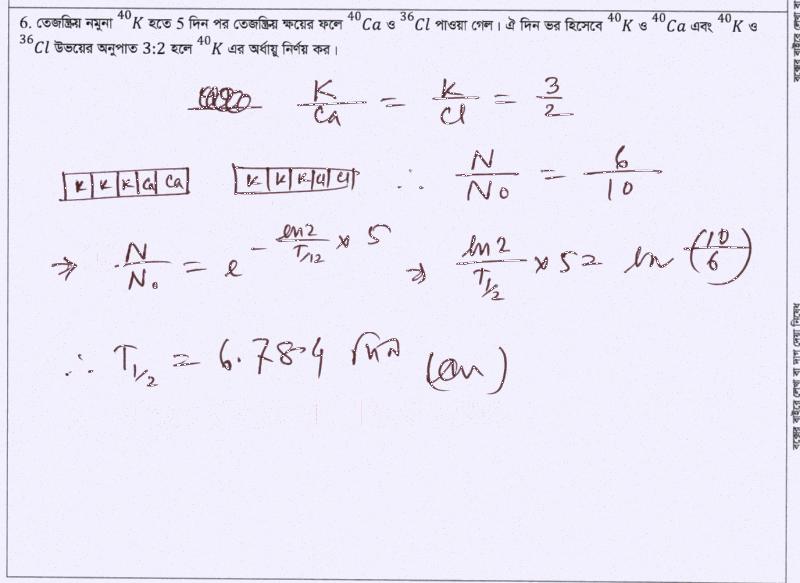 6. তেজস্ক্রিয় নমুনা ⁴⁰K হতে 5 দিন পর তেজস্ক্রিয় ক্ষয়ের ফলে ⁴⁰Ca ও ³⁶Cl পাওয়া গেল। ঐ দিন ভর হিসেবে ⁴⁰K ও ⁴⁰Ca এবং ⁴⁰K ও
³⁶Cl উভয়ের অনুপাত 3:2 হলে ⁴⁰K এর অর্ধায়ু নির্ণয় কর।
K/Ca = K/Cl = 3/2
K K K Ca Ca K K K Cl Cl ∴ N/N₀ = 6/10
⇒ N/N₀ = e^(-ln2/T_1/2 × 5) ⇒ ln2/T_1/2 × 5 = ln(10/6)
∴ T_1/2 = 6.784 দিন (Ans)
বক্সের বাইরে লেখা বা দাগ দেয়া নিষেধ